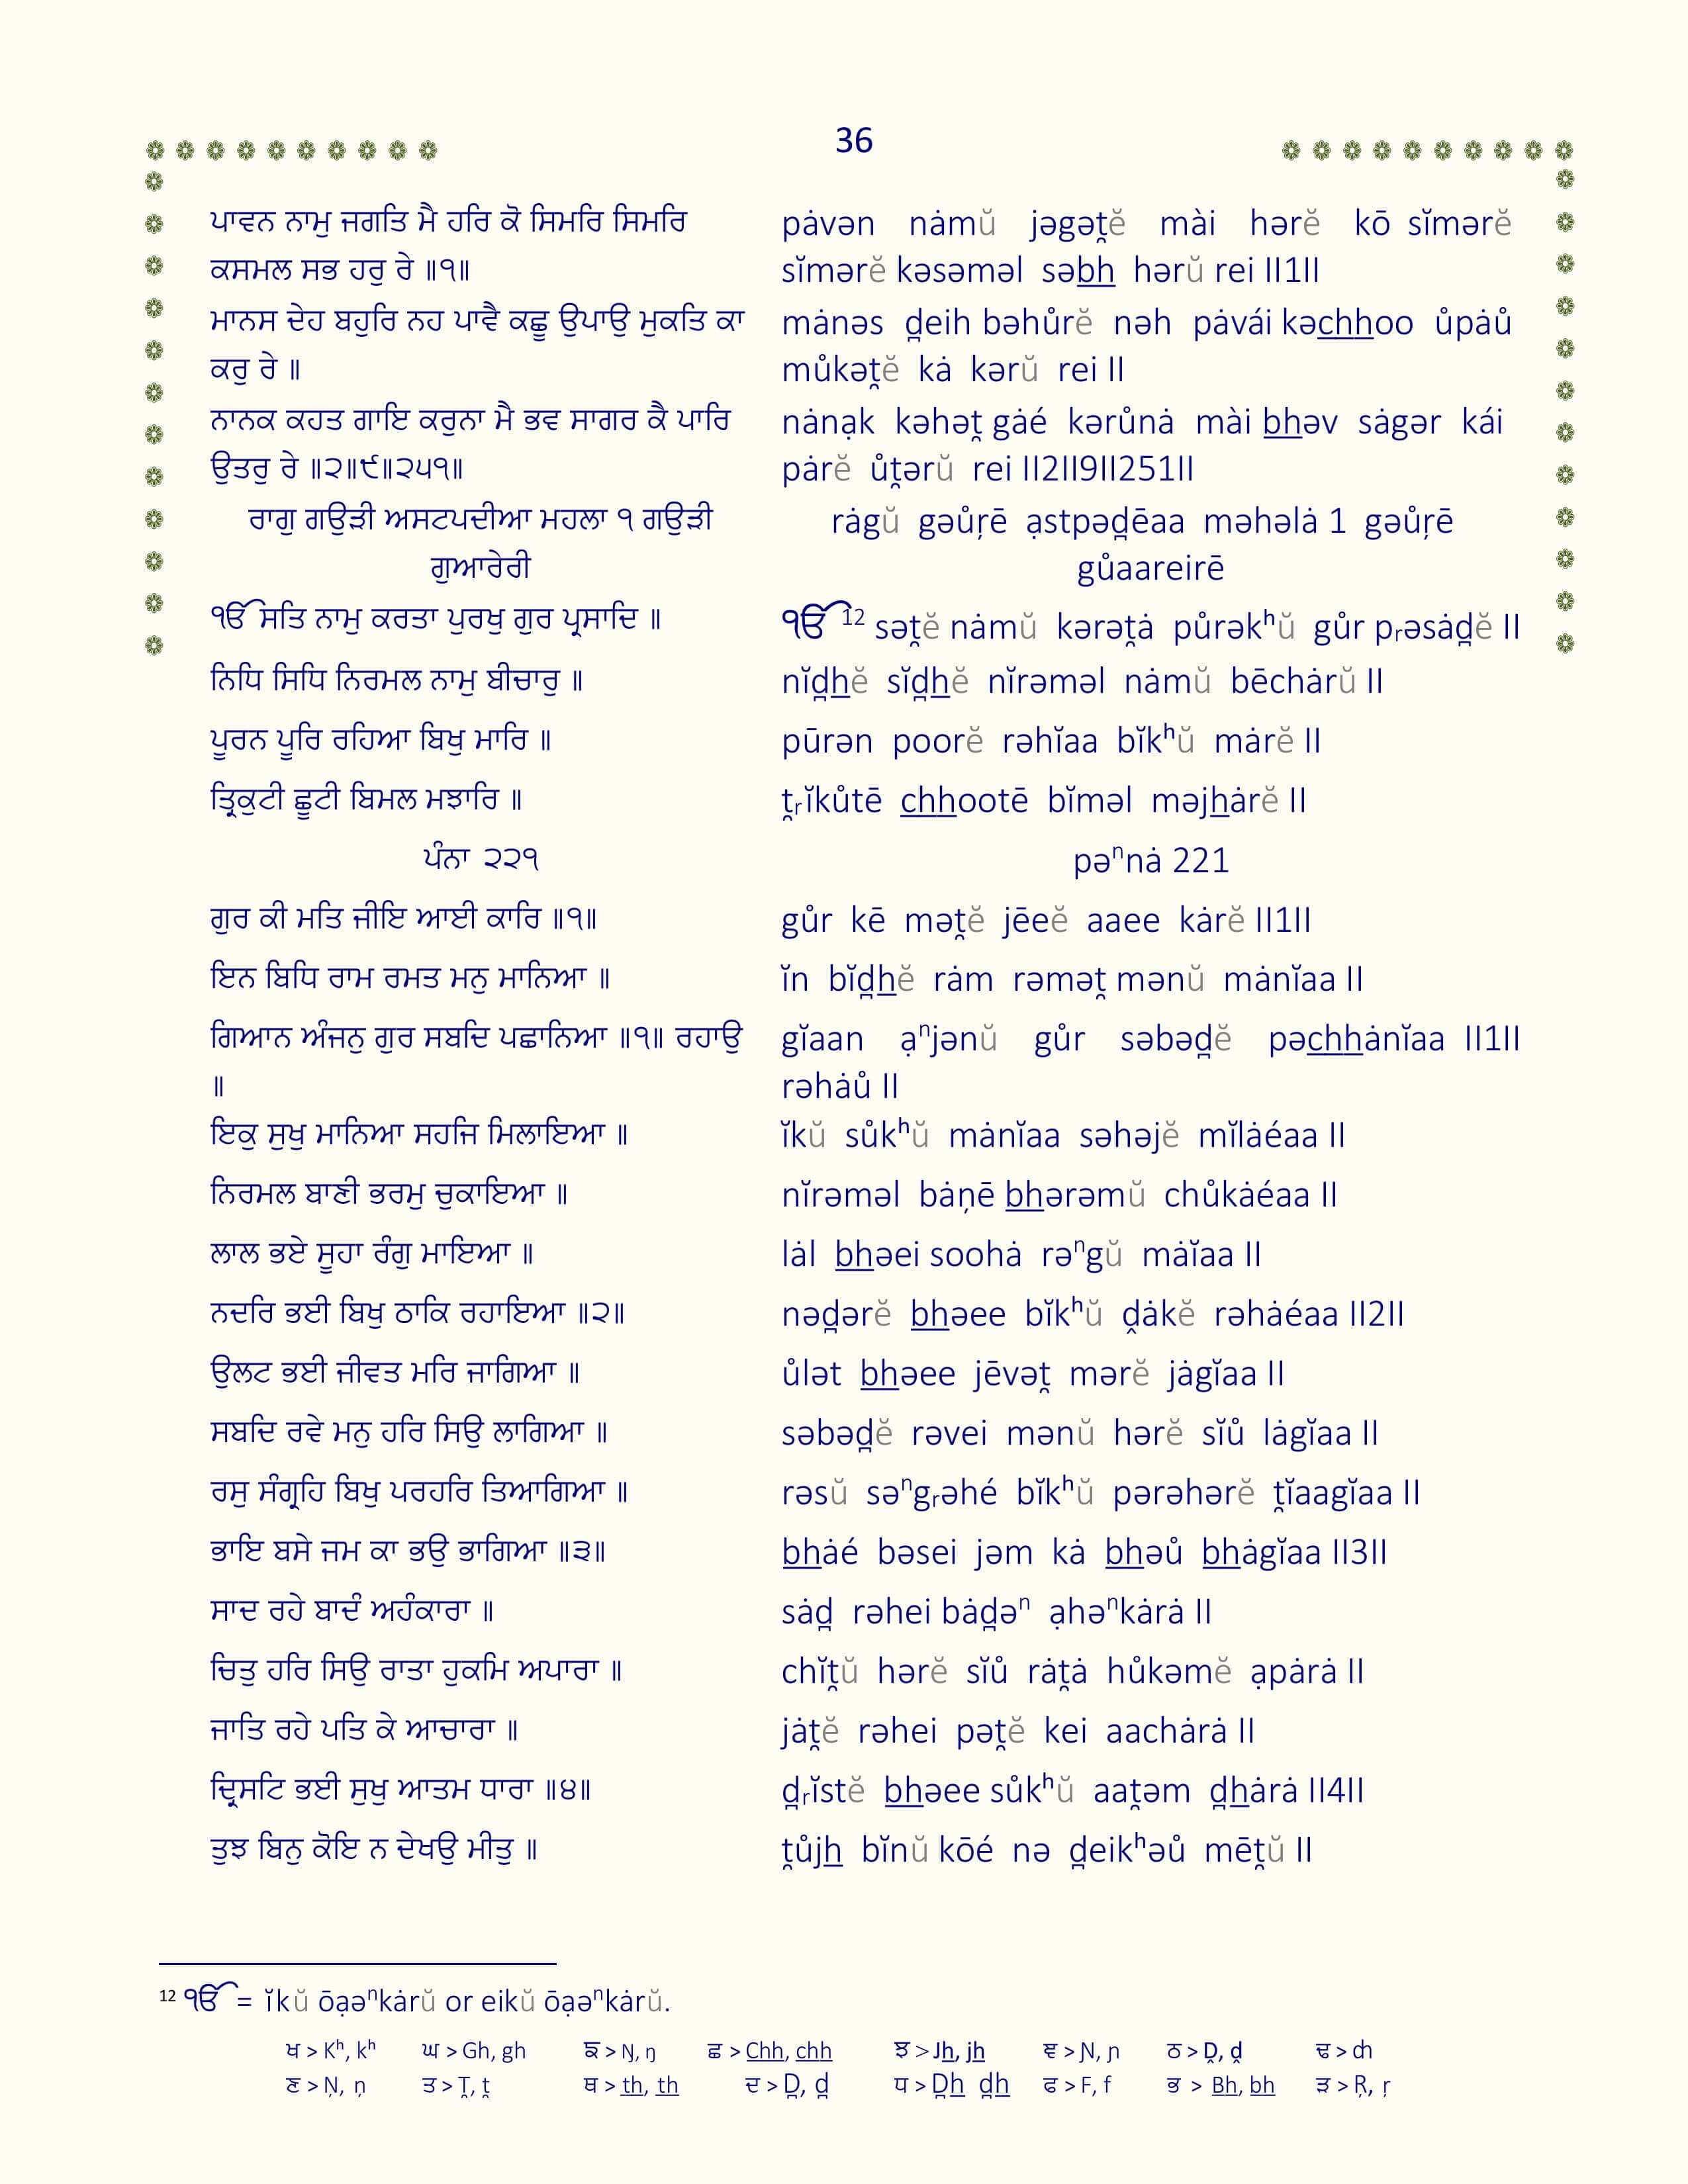 36
ਪਾਵਨ ਨਾਮੁ ਜਗਤਿ ਮੈ ਹਰਿ ਕੋ ਸਿਮਰਿ ਸਿਮਰਿ
ਕਸਮਲ ਸਭ ਹਰੁ ਰੇ ॥੧॥
ਮਾਨਸ ਦੇਹ ਬਹੁਰਿ ਨਹ ਪਾਵੈ ਕਛੂ ਉਪਾਉ ਮੁਕਤਿ ਕਾ
ਕਰੁ ਰੇ ॥
ਨਾਨਕ ਕਹਤ ਗਾਇ ਕਰੁਨਾ ਮੈ ਭਵ ਸਾਗਰ ਕੈ ਪਾਰਿ
ਉਤਰੁ ਰੇ ॥੨॥੯॥੨੫੧॥
ਰਾਗੁ ਗਉੜੀ ਅਸਟਪਦੀਆ ਮਹਲਾ ੧ ਗਉੜੀ
ਗੁਆਰੇਰੀ
ੴ ਸਤਿ ਨਾਮੁ ਕਰਤਾ ਪੁਰਖੁ ਗੁਰ ਪ੍ਰਸਾਦਿ ॥
ਨਿਧਿ ਸਿਧਿ ਨਿਰਮਲ ਨਾਮੁ ਬੀਚਾਰੁ ॥
ਪੂਰਨ ਪੂਰਿ ਰਹਿਆ ਬਿਖੁ ਮਾਰਿ ॥
ਤ੍ਰਿਕੁਟੀ ਛੂਟੀ ਬਿਮਲ ਮਝਾਰਿ ॥
ਪੰਨਾ ੨੨੧
ਗੁਰ ਕੀ ਮਤਿ ਜੀਇ ਆਈ ਕਾਰਿ ॥੧॥
ਇਨ ਬਿਧਿ ਰਾਮ ਰਮਤ ਮਨੁ ਮਾਨਿਆ ॥
ਗਿਆਨ ਅੰਜਨੁ ਗੁਰ ਸਬਦਿ ਪਛਾਨਿਆ ॥੧॥ ਰਹਾਉ
॥
ਇਕੁ ਸੁਖੁ ਮਾਨਿਆ ਸਹਜਿ ਮਿਲਾਇਆ ॥
ਨਿਰਮਲ ਬਾਣੀ ਭਰਮੁ ਚੁਕਾਇਆ ॥
ਲਾਲ ਭਏ ਸੂਹਾ ਰੰਗੁ ਮਾਇਆ ॥
ਨਦਰਿ ਭਈ ਬਿਖੁ ਠਾਕਿ ਰਹਾਇਆ ॥੨॥
ਉਲਟ ਭਈ ਜੀਵਤ ਮਰਿ ਜਾਗਿਆ ॥
ਸਬਦਿ ਰਵੇ ਮਨੁ ਹਰਿ ਸਿਉ ਲਾਗਿਆ ॥
ਰਸੁ ਸੰਗ੍ਰਹਿ ਬਿਖੁ ਪਰਹਰਿ ਤਿਆਗਿਆ ॥
ਭਾਇ ਬਸੇ ਜਮ ਕਾ ਭਉ ਭਾਗਿਆ ॥੩॥
ਸਾਦ ਰਹੇ ਬਾਦੰ ਅਹੰਕਾਰਾ ॥
ਚਿਤੁ ਹਰਿ ਸਿਉ ਰਾਤਾ ਹੁਕਮਿ ਅਪਾਰਾ ॥
ਜਾਤਿ ਰਹੇ ਪਤਿ ਕੇ ਆਚਾਰਾ ॥
ਦ੍ਰਿਸਟਿ ਭਈ ਸੁਖੁ ਆਤਮ ਧਾਰਾ ॥੪॥
ਤੁਝ ਬਿਨੁ ਕੋਇ ਨ ਦੇਖਉ ਮੀਤੁ ॥
pȧvən nȧmŭ jəgət̯ĕ mài hərĕ kō sĭmərĕ
sĭmərĕ kəsəməl səb̲h̲ hərŭ rei II1II
mȧnəs d̯eih bəhůrĕ nəh pȧvái kəc̲h̲h̲oo ůpȧů
můkət̯ĕ kȧ kərŭ rei II
nȧnạk kəhət̯ gȧé kərůnȧ mài b̲h̲əv sȧgər kái
pȧrĕ ůt̯ərŭ rei II2II9II251II
rȧgŭ gəůŗē ạstpəd̯ēaa məhəlȧ 1 gəůŗē
gůaareirē
ੴ ¹² sət̯ĕ nȧmŭ kərət̯ȧ půrəkʰŭ gůr pᵣəsȧd̯ĕ II
nĭd̯h̲ĕ sĭd̯h̲ĕ nĭrəməl nȧmŭ bēchȧrŭ II
pūrən poorĕ rəhĭaa bĭkʰŭ mȧrĕ II
t̯ᵣĭkůtē c̲h̲h̲ootē bĭməl məjh̲ȧrĕ II
pəⁿnȧ 221
gůr kē mət̯ĕ jēeĕ aaee kȧrĕ II1II
ĭn bĭd̯h̲ĕ rȧm rəmət̯ mənŭ mȧnĭaa II
gĭaan ạⁿjənŭ gůr səbəd̯ĕ pəc̲h̲h̲ȧnĭaa II1II
rəhȧů II
ĭkŭ sůkʰŭ mȧnĭaa səhəjĕ mĭlȧéaa II
nĭrəməl bȧņē b̲h̲ərəmŭ chůkȧéaa II
lȧl b̲h̲əei soohȧ rəⁿgŭ mȧĭaa II
nəd̯ərĕ b̲h̲əee bĭkʰŭ ḓȧkĕ rəhȧéaa II2II
ůlət b̲h̲əee jēvət̯ mərĕ jȧgĭaa II
səbəd̯ĕ rəvei mənŭ hərĕ sĭů lȧgĭaa II
rəsŭ səⁿgᵣəhé bĭkʰŭ pərəhərĕ t̯ĭaagĭaa II
b̲h̲ȧé bəsei jəm kȧ b̲h̲əů b̲h̲ȧgĭaa II3II
sȧd̯ rəhei bȧd̯əⁿ ạhəⁿkȧrȧ II
chĭt̯ŭ hərĕ sĭů rȧt̯ȧ hůkəmĕ ạpȧrȧ II
jȧt̯ĕ rəhei pət̯ĕ kei aachȧrȧ II
d̯ᵣĭstĕ b̲h̲əee sůkʰŭ aat̯əm d̯h̲ȧrȧ II4II
t̯ůjh̲ bĭnŭ kōé nə d̯eikʰəů mēt̯ŭ II
¹² ੴ = ĭkŭ ōạəⁿkȧrŭ or eikŭ ōạəⁿkȧrŭ.
ਖ > Kʰ, kʰ ਘ > Gh, gh ਙ > Ŋ, ŋ ਛ > C̲h̲h̲, c̲h̲h̲ ਝ > Jh̲, jh̲ ਞ > Ɲ, ɲ ਠ > Ḓ, ḓ ਢ > ȸ
ਣ > Ņ, ņ ਤ > T̯, t̯ ਥ > t̲h̲, t̲h̲ ਦ > D̯, d̯ ਧ > D̯h̲ d̯h̲ ਫ > F, f ਭ > B̲h̲, b̲h̲ ੜ > Ŗ, ŗ